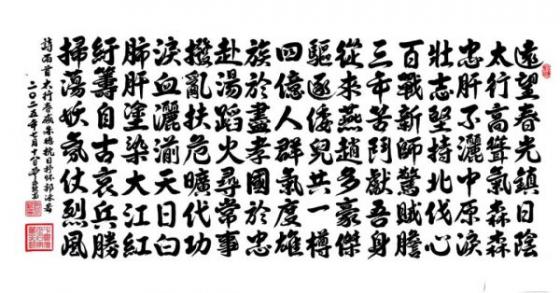 遠望春光鎮日陰
太行高聳氣森森
忠肝不灑中原淚
壯志堅持北伐心
百戰新師驚賊膽
三年苦鬥獻吾身
從來燕趙多豪傑
驅逐倭兒共一樽
四億人群氣度雄
族於盡孝國於忠
赴湯蹈火尋常事
撥亂扶危曠代功
淚血灑渝天日白
肺肝塗染大江紅
紆籌自古哀兵勝
掃蕩妖氛仗烈風
詩兩首 太行春感朱德抗日抒怀郭沫若
二〇二五年七月十